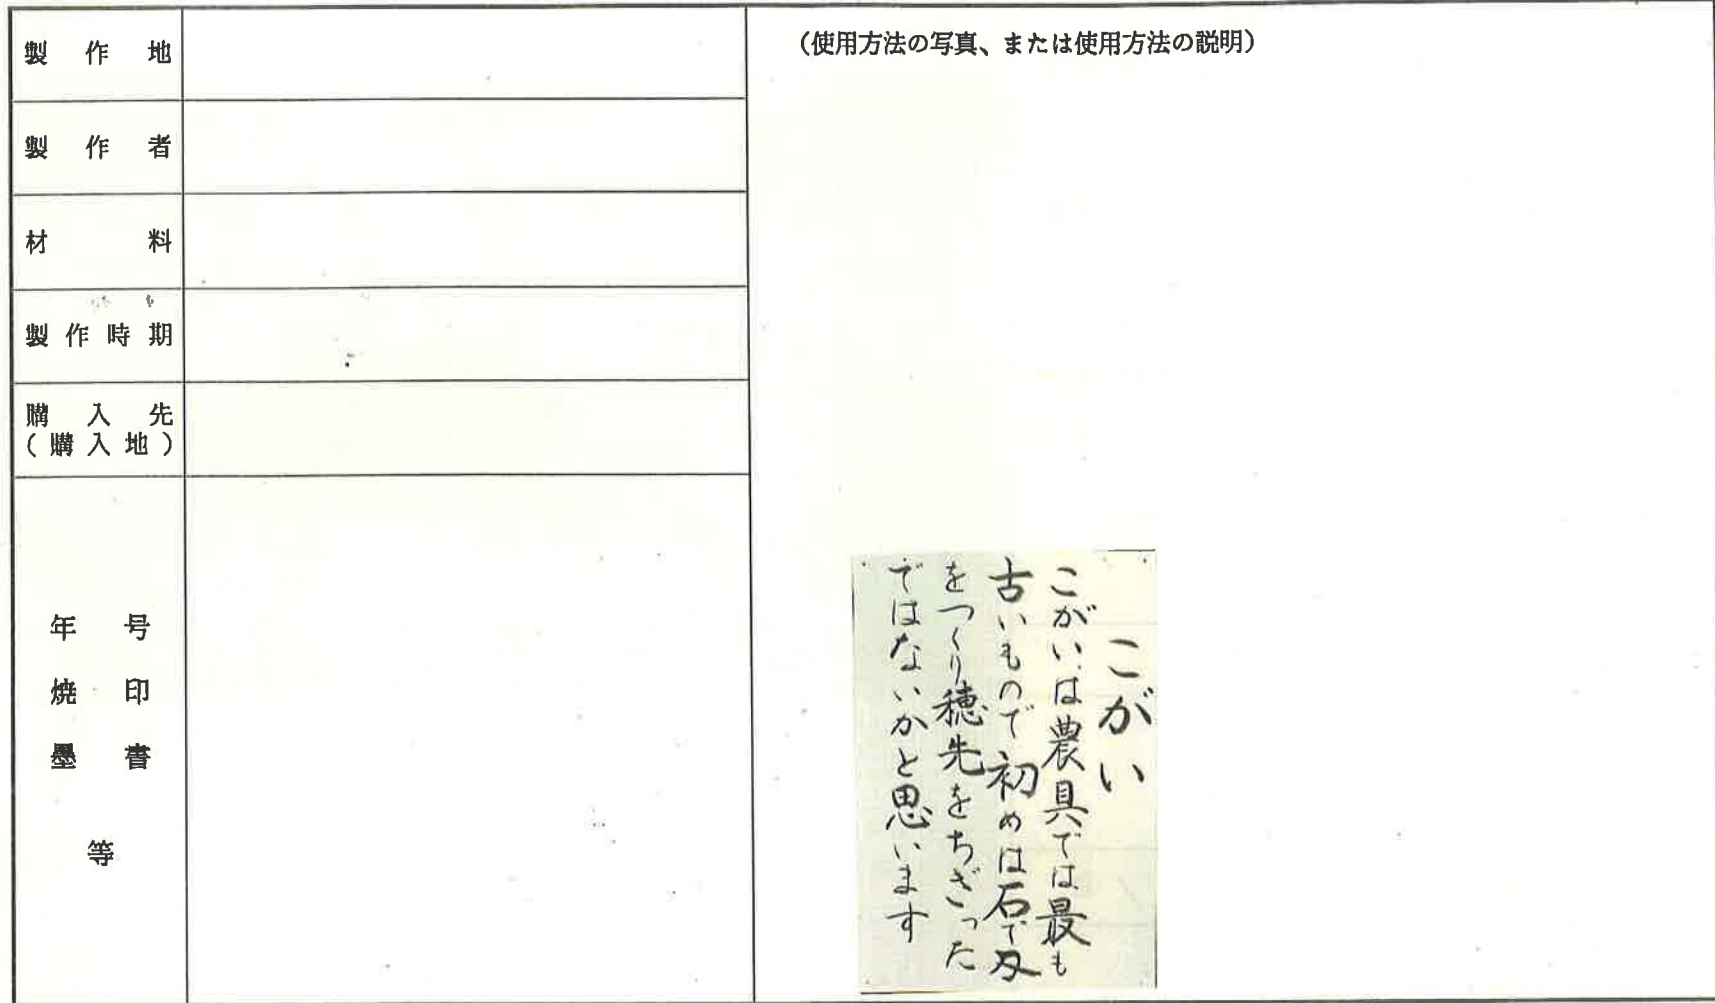 製作地
製作者
材料
製作時期
購入先
(購入地)
年号
焼印
墨書
等
(使用方法の写真、または使用方法の説明)
こがい
こがいは農具では最も
古いもので初めは石で刄
をつくり穂先をちぎった
ではないかと思います